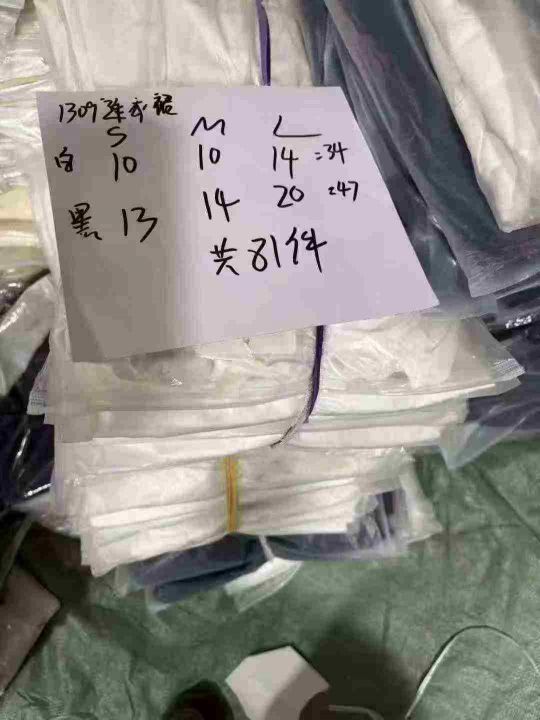 1309连衣裙
S M L
白 10 10 14 =34
黑 13 14 20 =47
共81件